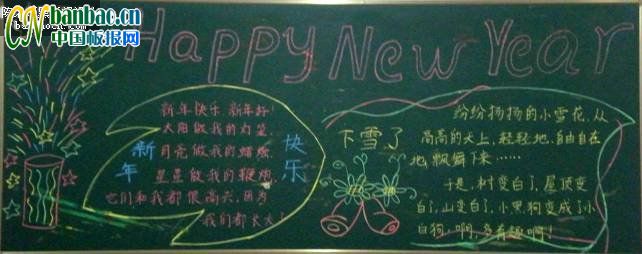 CNbanbao.cn
中国板报网
Happy New Year
新年快乐 新年好!
太阳做我的灯笼,
月亮做我的蜡烛,
星星做我的鞭炮,
它们和我都很高兴,因为
我们都长大了!
新年
快乐
下雪了
纷纷扬扬的小雪花,从
高高的天上,轻轻地,自由自在
地,飘舞下来……
于是,树变白了,屋顶变
白了,山变白了,小黑狗变成了小
白狗,啊,多有趣啊!